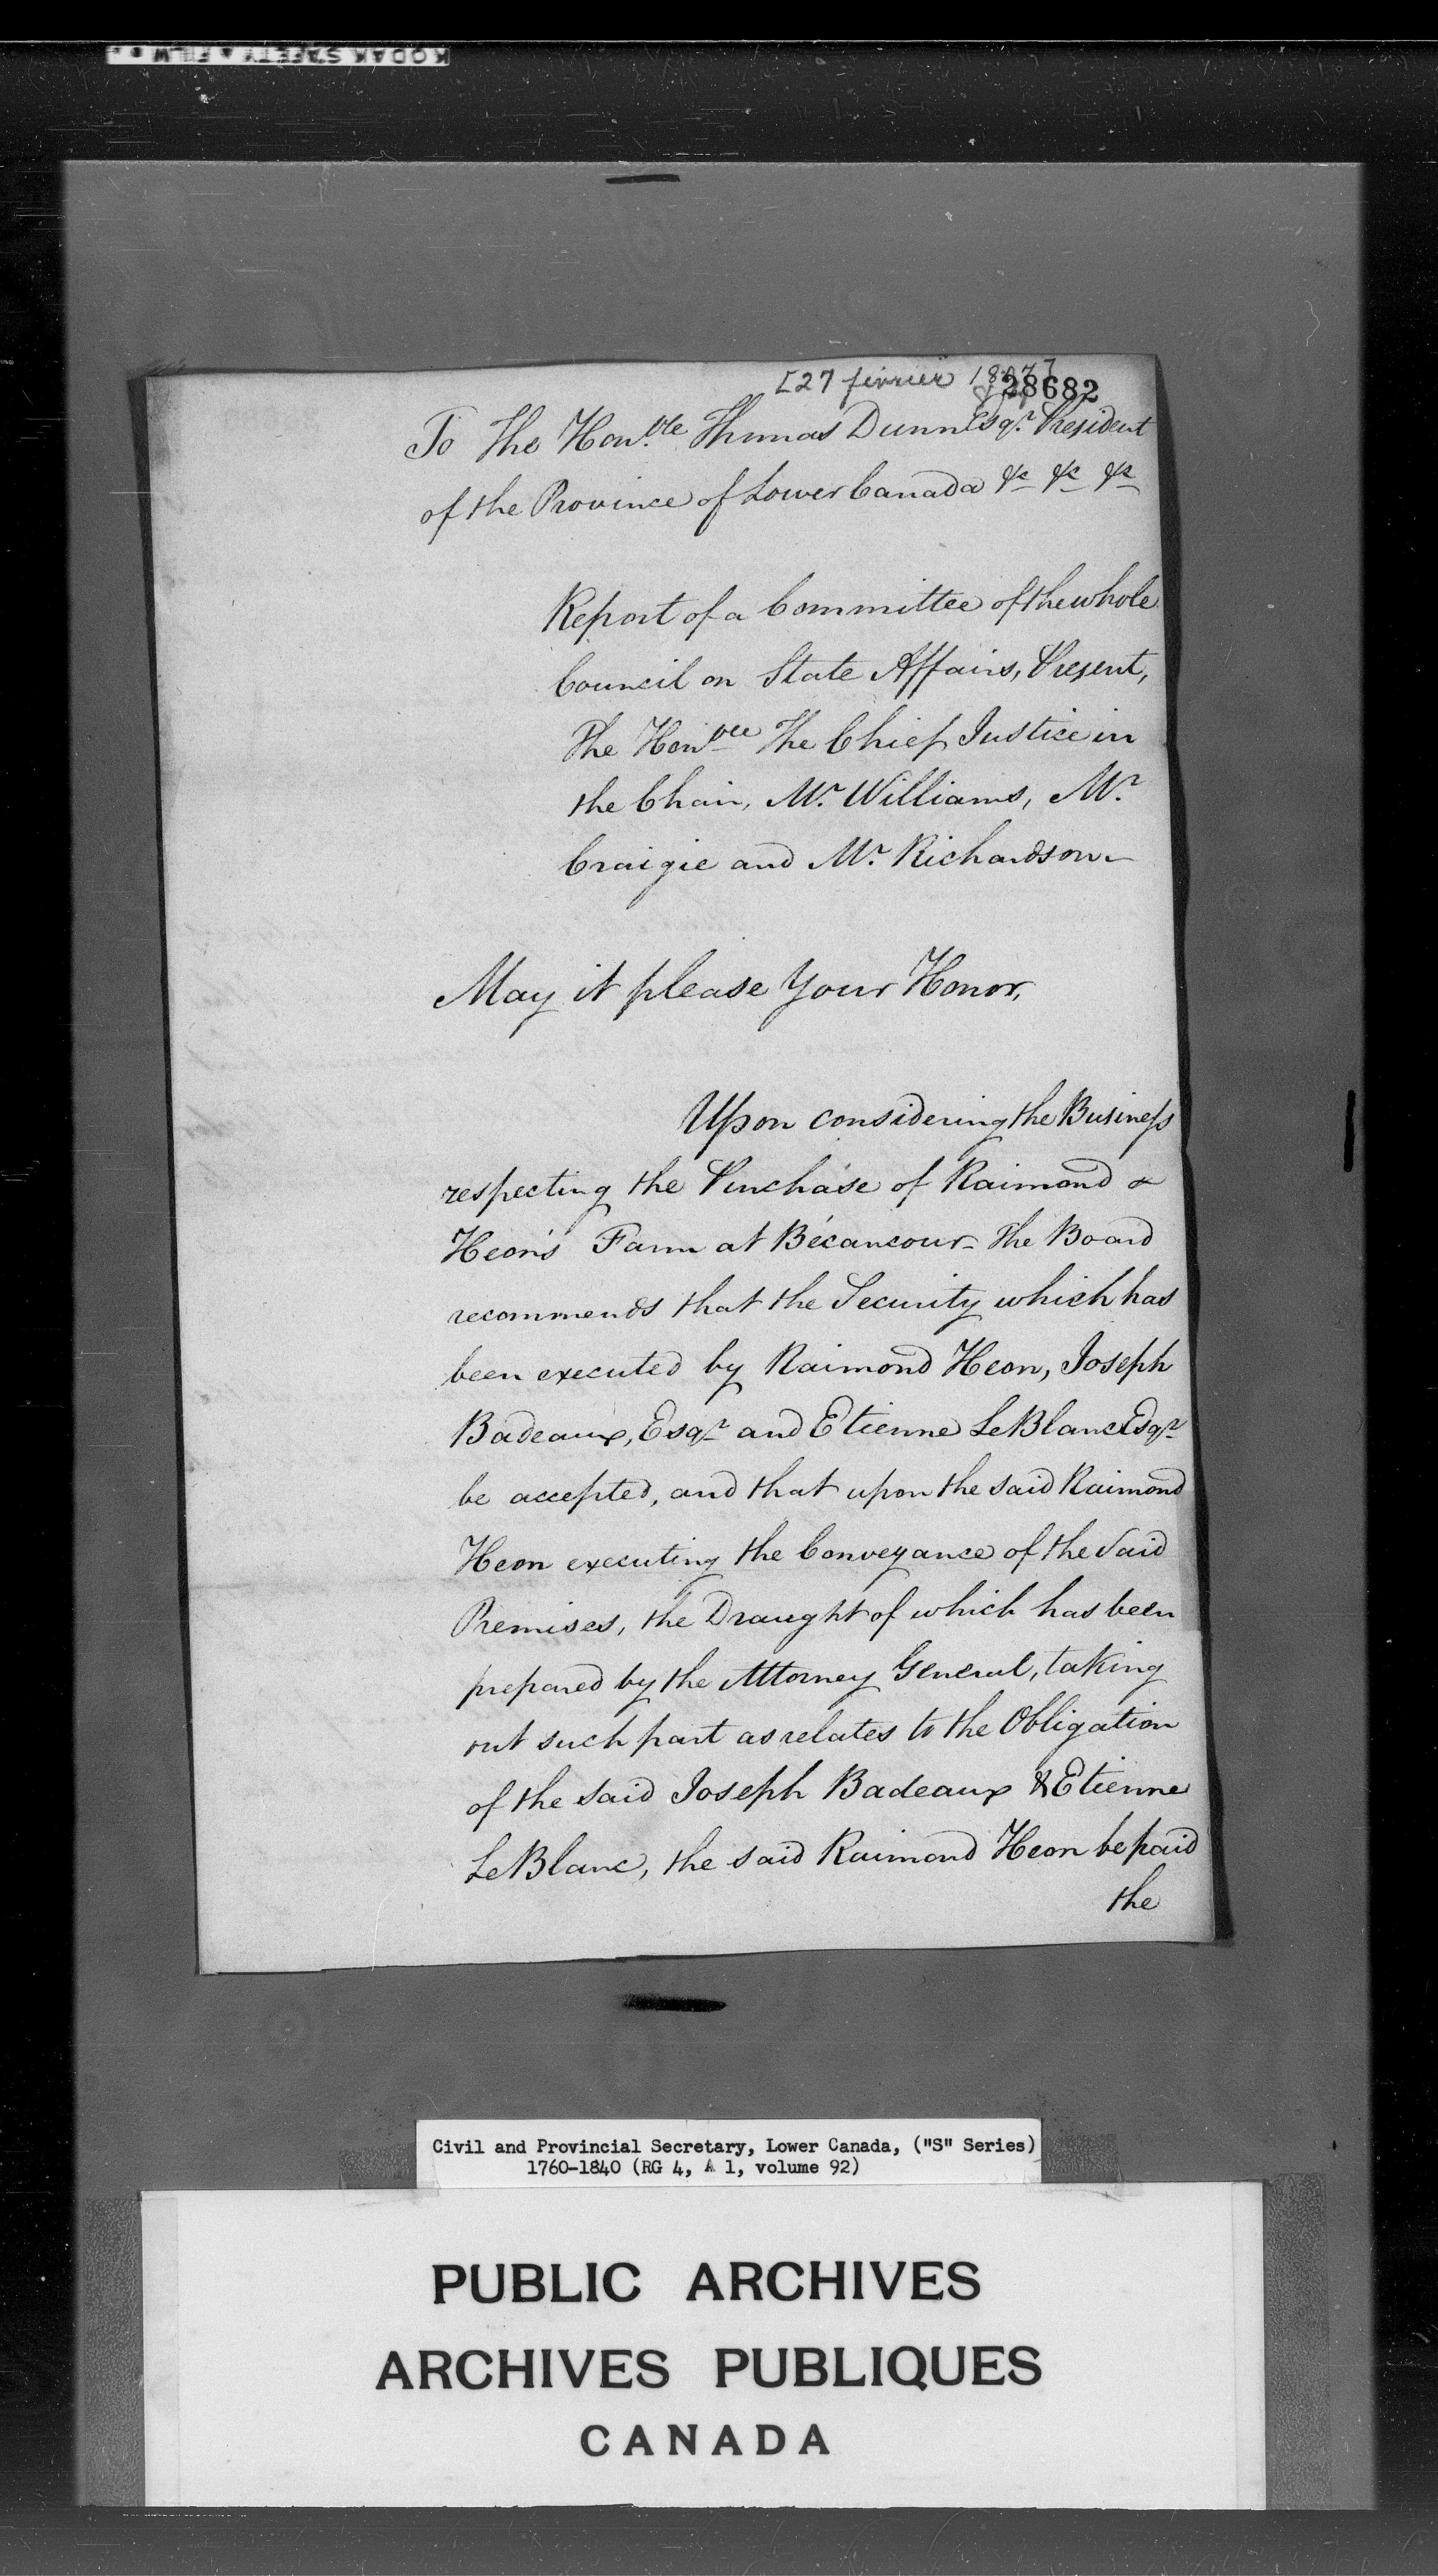 KODAK SAFETY FILM
[27 février 1807]
28682
To The Hon.ble Thomas Dunn Esqr. President
of the Province of Lower Canada &c &c &c
Report of a Committee of the whole
Council on State Affairs, Present,
The Hon'ble The Chief Justice in
the Chair, Mr. Williams, Mr.
Craigie and Mr. Richardson-
May it please Your Honor,
Upon considering the Business
respecting the Purchase of Raimond
Heon's Farm at Bécancour- The Board
recommends that the Security which has
been executed by Raimond Heon, Joseph
Badeaux, Esqr and Etienne LeBlanc Esqr
be accepted, and that upon the said Raimond
Heon executing the Conveyance of the said
Premises, the Draught of which has been
prepared by the Attorney General, taking
out such part as relates to the Obligation
of the said Joseph Badeaux & Etienne
LeBlanc, the said Raimond Heon be paid
the
Civil and Provincial Secretary, Lower Canada, ("S" Series)
1760-1840 (RG 4, A 1, volume 92)
PUBLIC ARCHIVES
ARCHIVES PUBLIQUES
CANADA